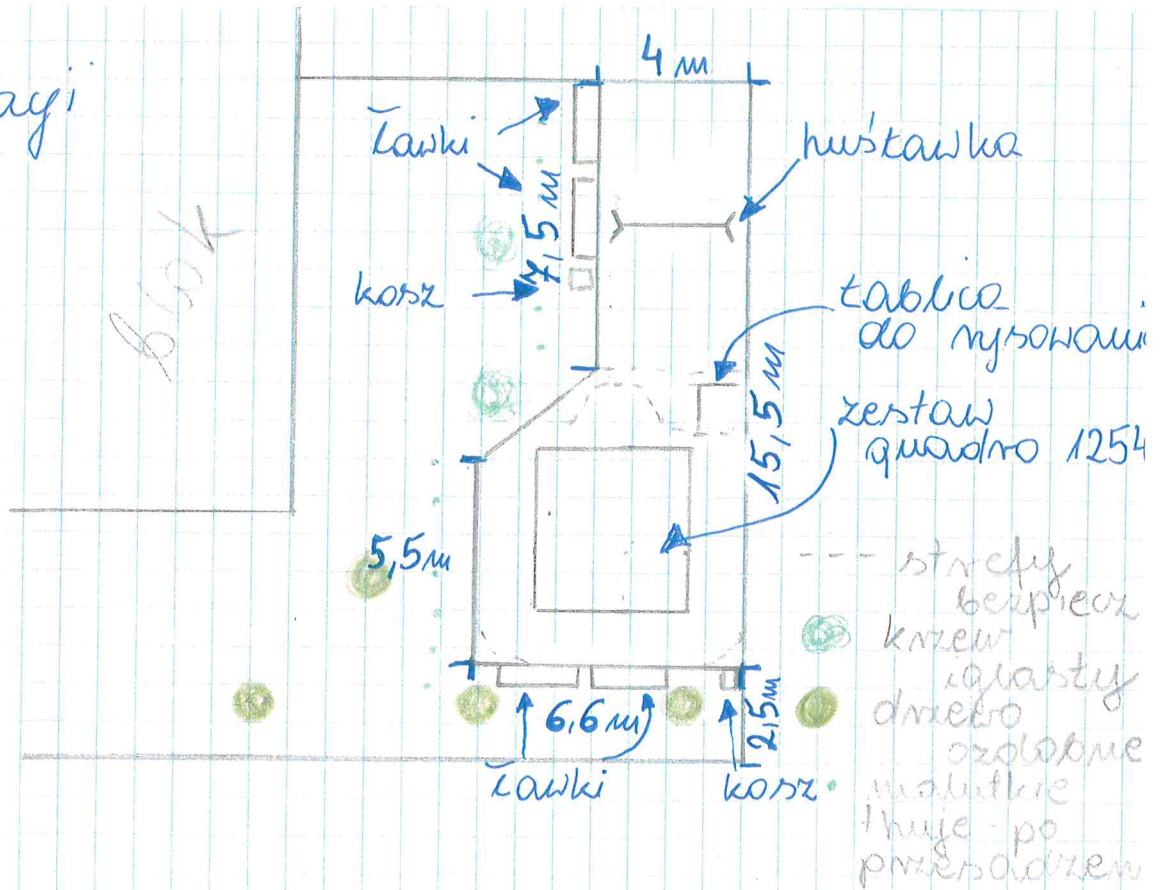 acji
4 m
Ławki
huśtawka
7,5 m
blok
kosz
tablica
do rysowani
15,5 m
zestaw
quadro 1254
5,5m
--- strefy
bezpiecz
krzew
iglasty
drzewo
ozdobne
malutkie
thuje - po
przesadzen
6,6 m
2,5m
Ławki
kosz